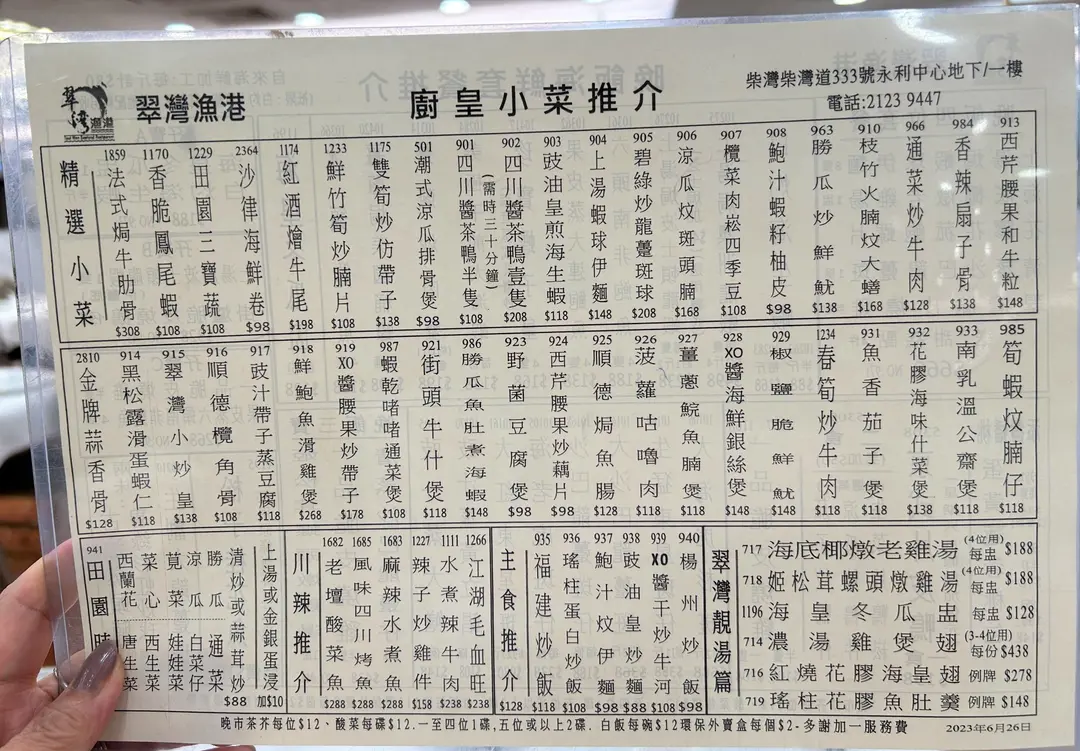 翠灣漁港
廚皇小菜推介
柴灣柴灣道333號永利中心地下/一樓
電話:2123 9447
精選小菜
1859 法式焗牛肋骨 $308
1170 香脆鳳尾蝦 $108
1229 田園三寶蔬 $108
2364 沙律海鮮卷 $98
1174 紅酒燴牛尾 $198
1233 鮮竹筍炒腩片 $108
1175 雙筍炒仿帶子 $138
501 潮式涼瓜排骨煲 $98
901 四川醬茶鴨半隻 $108
(需時三十分鐘)
902 四川醬茶鴨壹隻 $208
903 豉油皇煎海生蝦 $118
904 上湯蝦球伊麵 $148
905 碧綠炒龍躉斑球 $208
906 涼瓜炆斑頭腩 $168
907 欖菜肉崧四季豆 $108
908 鮑汁蝦籽柚皮 $98
963 勝瓜炒鮮魷 $138
910 枝竹火腩炆大鱔 $168
966 通菜炒牛肉 $128
984 香辣扇子骨 $138
913 西芹腰果和牛粒 $148
2810 金牌蒜香骨 $128
914 黑松露滑蛋蝦仁 $118
915 翠灣小炒皇 $138
916 順德欖角骨 $108
917 豉汁帶子蒸豆腐 $118
918 鮮鮑魚滑雞煲 $268
919 XO醬腰果炒帶子 $178
987 蝦乾啫啫通菜煲 $108
921 街頭牛什煲 $118
986 勝瓜魚肚煮海蝦 $148
923 野菌豆腐煲 $98
924 西芹腰果炒藕片 $98
925 順德焗魚腸 $128
926 菠蘿咕嚕肉 $118
927 薑蔥鯇魚腩煲 $118
928 XO醬海鮮銀絲煲 $148
929 椒鹽脆鮮魷 $148
1234 春筍炒牛肉 $118
931 魚香茄子煲 $118
932 花膠海味什菜煲 $138
933 南乳溫公齋煲 $118
985 筍蝦炆腩仔 $118
941 田園時
西蘭花 唐生菜
菜心 西生菜
莧菜 娃娃菜
涼瓜 白菜仔
勝瓜 通菜
清炒或蒜茸炒 $88
上湯或金銀蛋浸 加$10
川辣推介
1682 老壇酸菜魚 $288
1685 風味四川烤魚 $288
1683 麻辣水煮魚 $288
1227 辣子炒雞件 $108
1111 水煮辣牛肉 $238
1266 江湖毛血旺 $238
主食推介 $128
935 福建炒飯 $118
936 瑤柱蛋白炒飯 $108
937 鮑汁炆伊麵 $98
938 豉油皇炒麵 $88
939 XO醬干炒牛河 $108
940 楊州炒飯 $98
翠灣靚湯篇
717 海底椰燉老雞湯 (4位用) 每盅 $188
718 姬松茸螺頭燉雞湯 (4位用) 每盅 $188
1196 海皇冬瓜盅 每盅 $128
714 濃湯雞煲翅 (3-4位用) 每份 $438
716 紅燒花膠海皇翅 例牌 $278
719 瑤柱花膠魚肚羹 例牌 $148
晚市茶芥每位$12、酸菜每碟$12.一至四位1碟,五位或以上2碟.白飯每碗$12環保外賣盒每個$2-多謝加一服務費
2023年6月26日